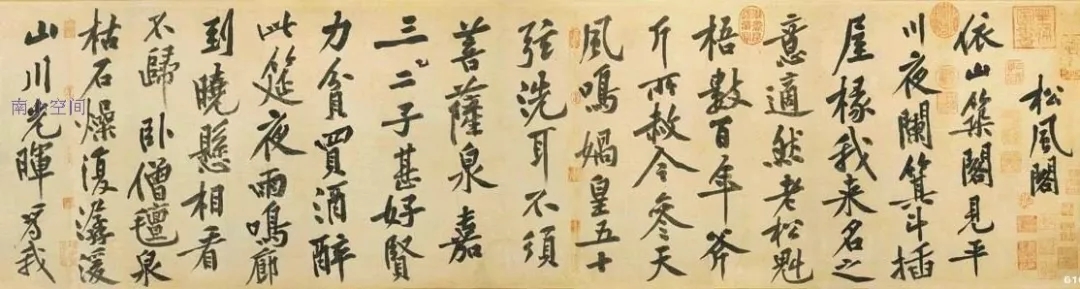 松風閣
依山築閣見平
川夜闌箕斗插
屋椽我来名之
意適然老松魁
梧數百年斧
斤所赦今參天
風鳴媧皇五十
弦洗耳不須
菩薩泉嘉
三二子甚好賢
力貧買酒醉
此筵夜雨鳴廊
到曉懸相看
不歸卧僧氊泉
枯石燥復潺湲
山川光暉為我
空间